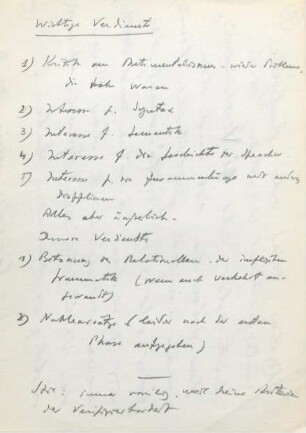 Wichtige Verdienste
1) Kritik am Antimentalismus - wieder Probleme,
die tabu waren
2) Interesse f. Syntax
3) Interesse f. Semantik
4) Interesse f. die Geschichte der Sprachw.
5) Interesse f. die Zusammenhänge mit anderen
Disziplinen
Alles aber äußerlich.
Innere Verdienste
1) Betonung des Relationellen - der impliziten
Grammatik (wenn auch verkehrt an-
gewandt)
2) Nuklearsätze (leider nach der ersten
Phase aufgegeben)
immer vorläufig, weil keine Kriterien
der Verifizierbarkeit